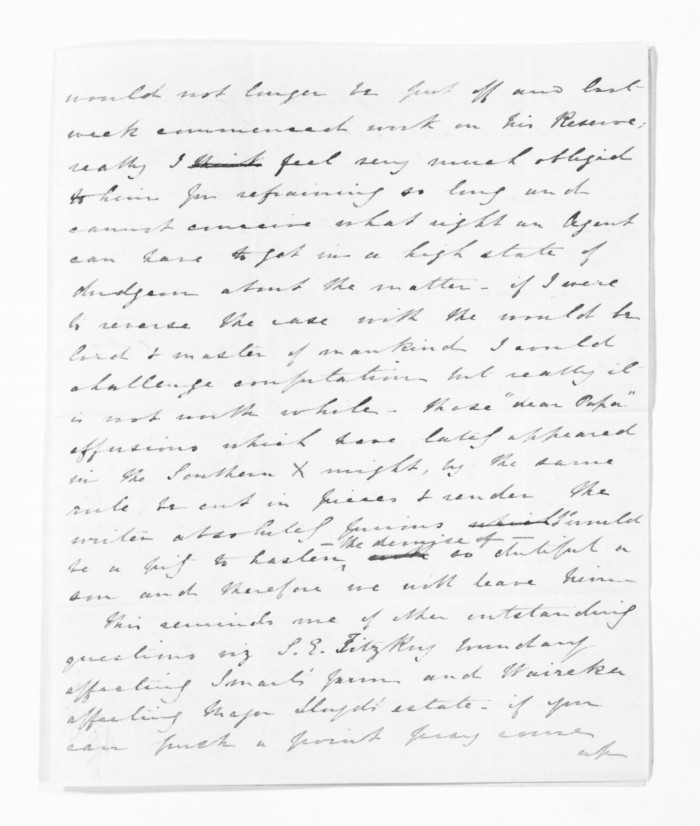 would not longer be put off and last
week commenced work on his Reserve;
really I think feel very much obliged
to him for refraining so long and
cannot conceive what right an Agent
can have to get in a high state of
dudgeon about the matter - if I were
to reverse the case with the would be
lord & master of mankind I could
challenge confutation but really it
is not worth while - Those "dear Papa"
effusions which have lately appeared
in the Southern X might, by the same
rule be cut in pieces & render the
writer absolutely furious which t'would
be a pity to hasten - the demise of - so dutiful a
son and therefore we will leave him -
This reminds me of other outstanding
questions viz S. E. FitzRoy boundary
affecting Smart's farm and Waireka
affecting Major Lloyd's estate - if you
can push a point pray come
up